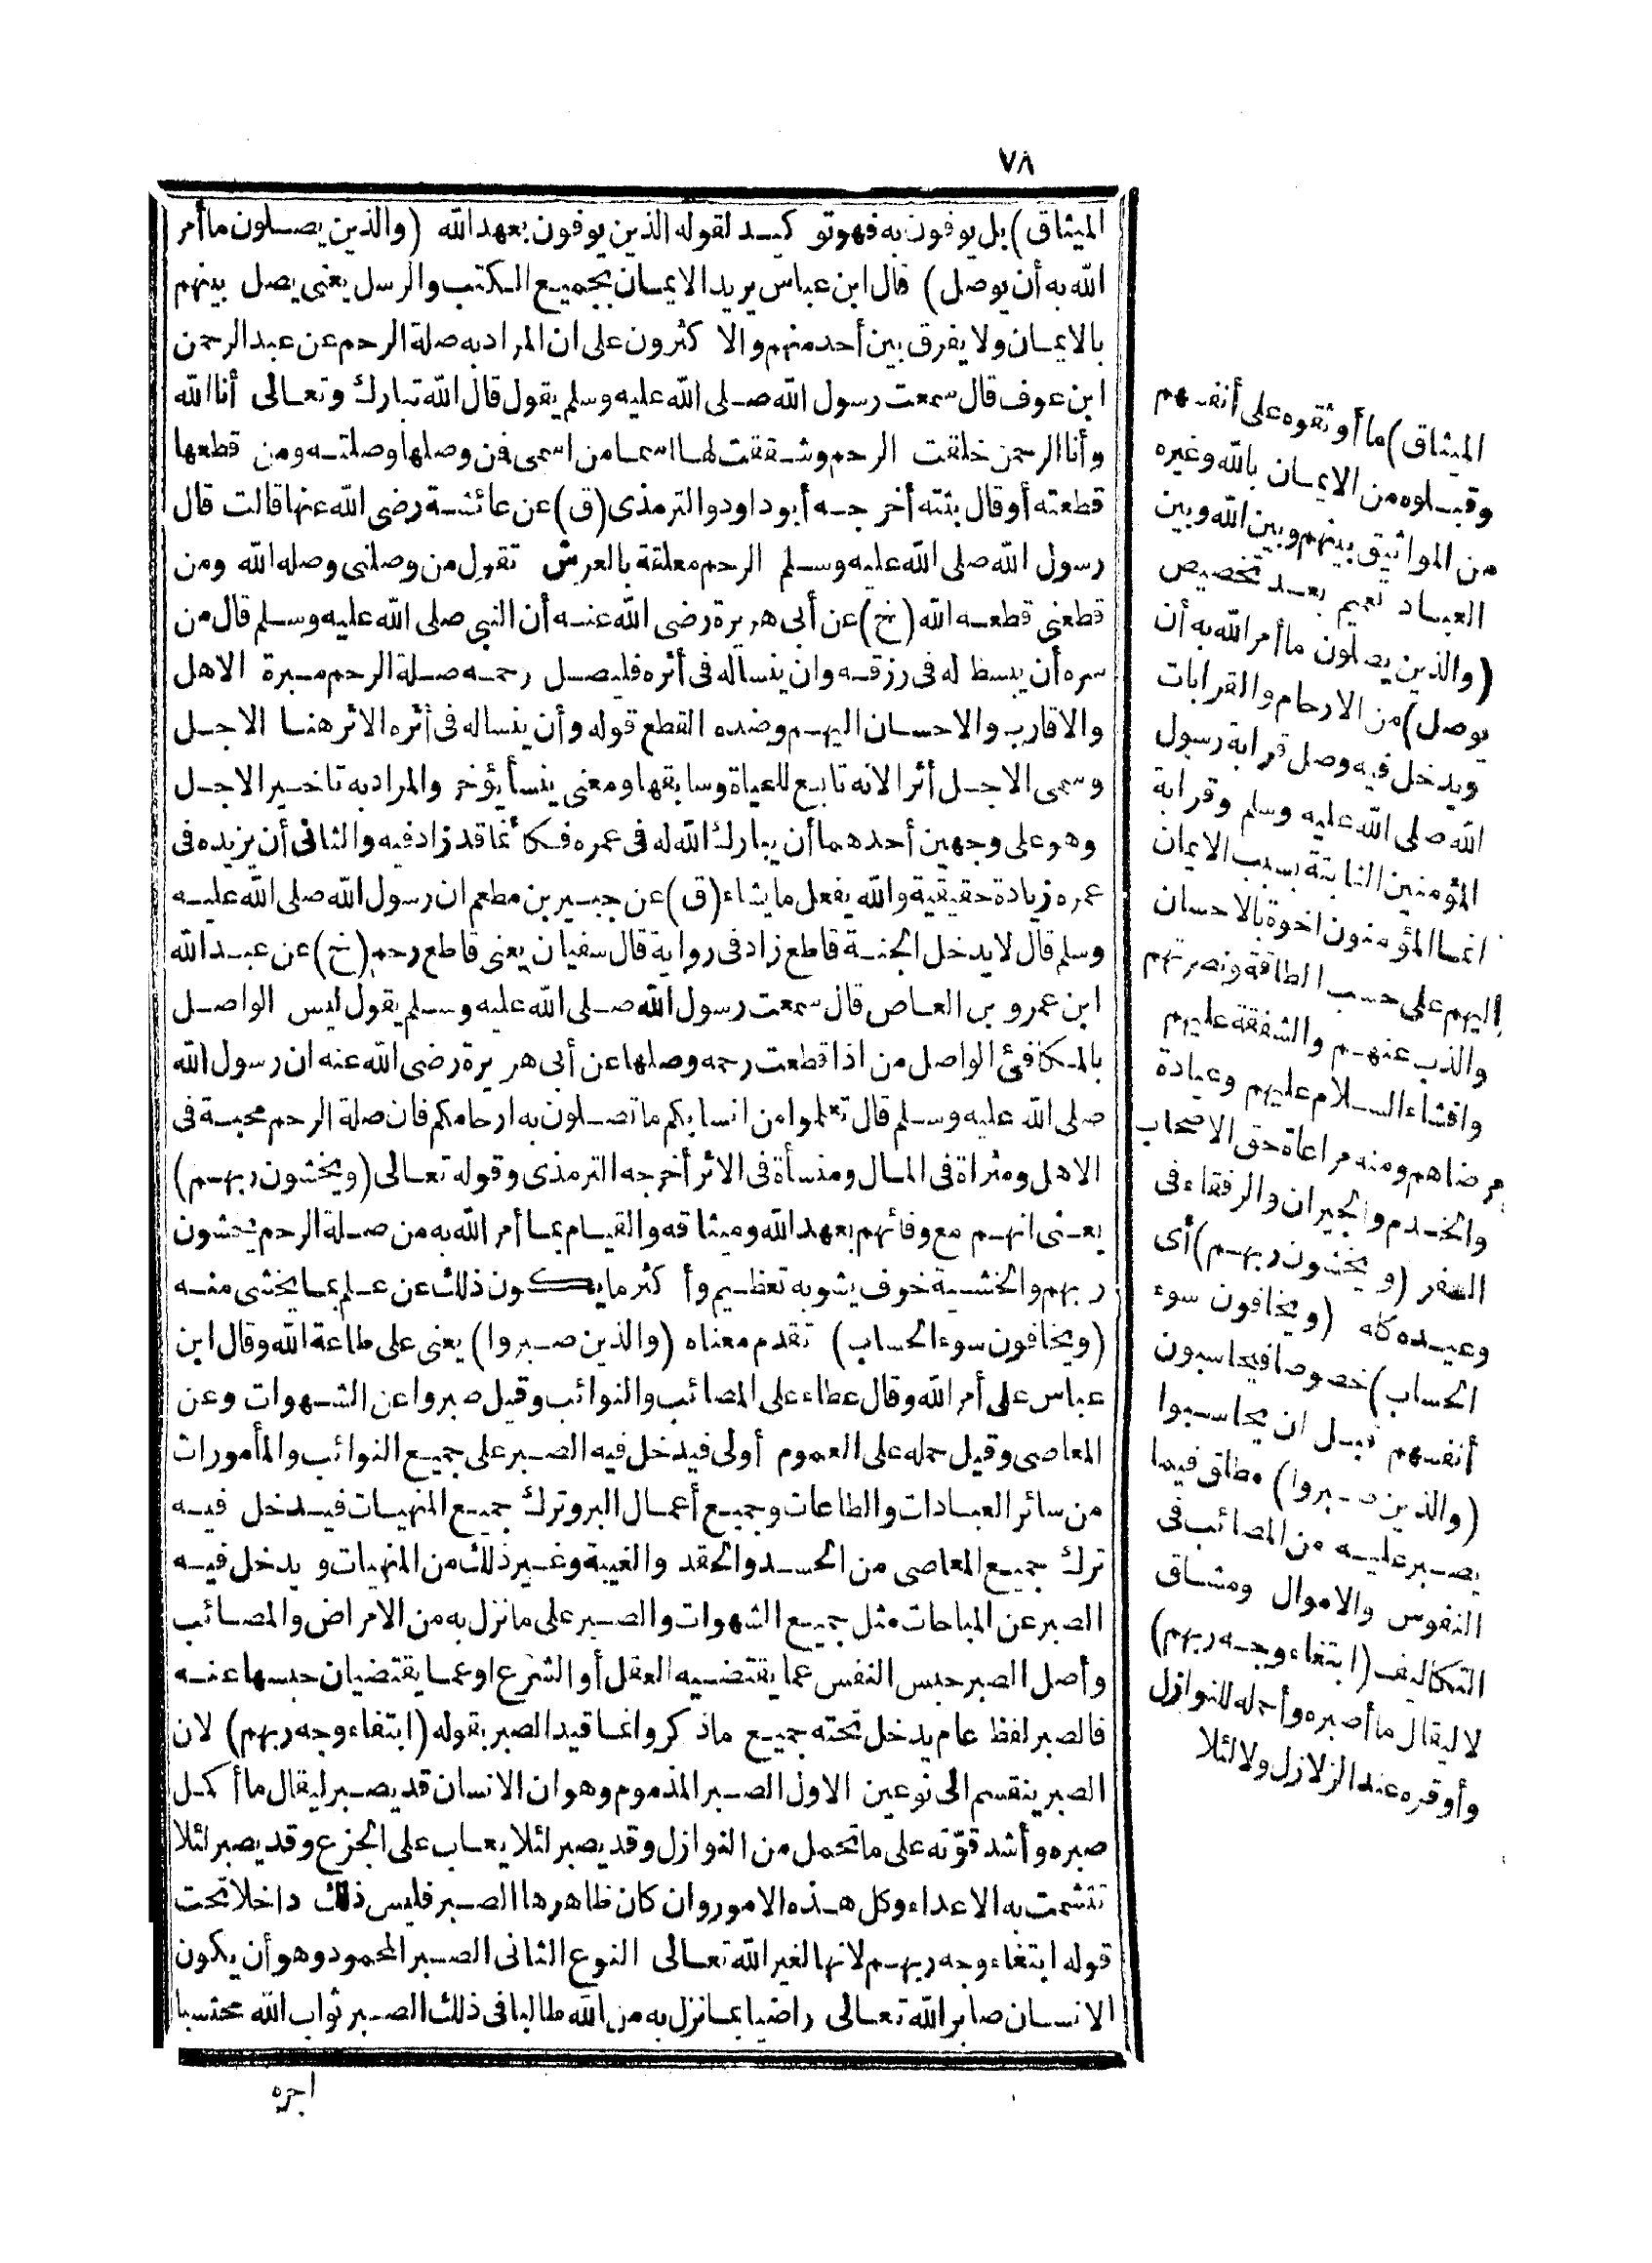 ٧٨
الميثاق) بل يوفون به فهو توكيد لقوله الذين يوفون بعهد الله (والذين يصلون ما أمر
الله به أن يوصل) قال ابن عباس يريد الايمان بجميع الكتب والرسل يعنى يصل بينهم
بالايمان ولا يفرق بين أحد منهم والا كثرون على ان المراد به صلة الرحم عن عبد الرحمن
ابن عوف قال سمعت رسول الله صلى الله عليه وسلم يقول قال الله تبارك وتعالى أنا الله
وأنا الرحمن خلقت الرحم وشققت لها اسما من اسمى فن وصلها وصلته ومن قطعها
قطعته أو قال بتته أخرجه أبو داود والترمذى (ق) عن عائشة رضى الله عنها قالت قال
رسول الله صلى الله عليه وسلم الرحم معلقة بالعرش تقول من وصلنى وصله الله ومن
قطعنى قطعه الله (خ) عن أبى هريرة رضى الله عنه أن النبي صلى الله عليه وسلم قال من
سره أن يبسط له فى رزقه وان ينسأ له فى أثره فليصل رحمه صلة الرحم مبرة الاهل
والاقارب والاحسان اليهم وضده القطع قوله وأن ينسا له فى أثره الاثر هنا الاجل
وسمى الاجل أثرا لانه تابع للحياة وسابقها ومعنى ينسأ يؤخر والمراد به تاخير الاجل
وهو على وجهين أحدهما أن يبارك الله له فى عمره فكأنما قد زاد فيه والثانى أن يزيده فى
عمره زيادة حقيقية والله يفعل ما يشاء (ق) عن جبير بن مطعم ان رسول الله صلى الله عليه
وسلم قال لا يدخل الجنة قاطع زاد فى رواية قال سفيان يعنى قاطع رحم (خ) عن عبد الله
ابن عمرو بن العاص قال سمعت رسول الله صلى الله عليه وسلم يقول ليس الواصل
بالمكافئ الواصل من اذا قطعت رحمه وصلها عن أبى هريرة رضى الله عنه ان رسول الله
صلى الله عليه وسلم قال تعلموا من انسابكم ما تصلون به ارحامكم فان صلة الرحم محبة فى
الاهل ومثراة فى المال ومنسأة فى الاثر أخرجه الترمذى وقوله تعالى (ويخشون ربهم)
يعنى انهم مع وفائهم بعهد الله وميثاقه والقيام بما أمر الله به من صلة الرحم يخشون
ربهم والخشية خوف يشوبه تعظيم وأكثر ما يكون ذلك عن علم بما يخشى منه
(ويخافون سوء الحساب) تقدم معناه (والذين صبروا) يعنى على طاعة الله وقال ابن
عباس على أمر الله وقال عطاء على المصائب والنوائب وقيل صبروا عن الشهوات وعن
المعاصى وقيل حمله على العموم أولى فيدخل فيه الصبر على جميع النوائب والمأمورات
من سائر العبادات والطاعات وجميع أعمال البر وترك جميع المنهيات فيدخل فيه
ترك جميع المعاصى من الحسد والحقد والغيبة وغير ذلك من المنهيات و يدخل فيه
الصبر عن المباحات مثل جميع الشهوات والصبر على ما نزل به من الامراض والمصائب
وأصل الصبر حبس النفس عما يقتضيه العقل أو الشرع او عما يقتضيان حبسها عنه
فالصبر لفظ عام يدخل تحته جميع ماذكر وانما قيد الصبر بقوله (ابتغاء وجه ربهم) لان
الصبر ينقسم الى نوعين الاول الصبر المذموم وهو ان الانسان قد يصبر ليقال ما أكمل
صبره وأشد قوّته على ما تحمل من النوازل وقد يصبر لئلا يعاب على الجزع وقد يصبر لئلا
تتشمت به الاعداء وكل هذه الامور وان كان ظاهرها الصبر فليس ذلك داخلا تحت
قوله ابتغاء وجه ربهم لانها لغير الله تعالى النوع الثانى الصبر المحمود وهو أن يكون
الانسان صابرا لله تعالى راضيا بما نزل به من الله طالبا فى ذلك الصبر ثواب الله محتسبا
اجره
الميثاق) ما أوثقوه على أنفسهم
وقبلوه من الايمان بالله وغيره
من المواثيق بينهم وبين الله وبين
العباد تعميم بعد تخصيص
(والذين يصلون ما أمر الله به أن
يوصل) من الارحام والقرابات
ويدخل فيه وصل قرابة رسول
الله صلى الله عليه وسلم وقرابة
المؤمنين الثابتة بسبب الايمان
انما المؤمنون اخوة بالاحسان
اليهم على حسب الطاقة ونصرتهم
والذب عنهم والشفقة عليهم
وافشاء السلام عليهم وعيادة
مرضاهم ومنه مراعاة حق الاصحاب
والخدم والجيران والرفقاء فى
السفر (ويخشون ربهم) أى
وعيده كله (ويخافون سوء
الحساب) خصوصا فيحاسبون
أنفسهم قبل ان يحاسبوا
(والذين صبروا) مطلق فيما
يصبر عليه من المصائب فى
النفوس والاموال ومشاق
التكاليف (ابتغاء وجه ربهم)
لا ليقال ما أصبره وأحمله للنوازل
وأوقره عند الزلازل ولا لئلا